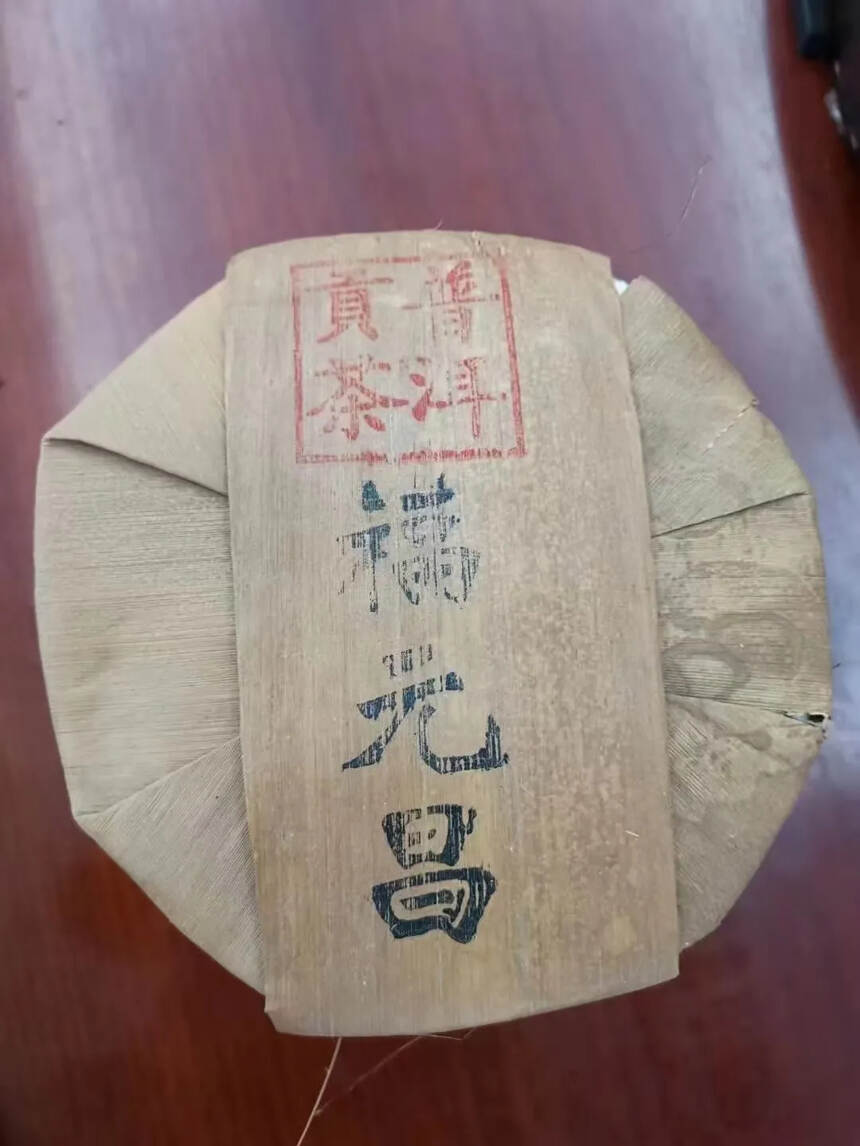 普洱
貢茶
福元昌